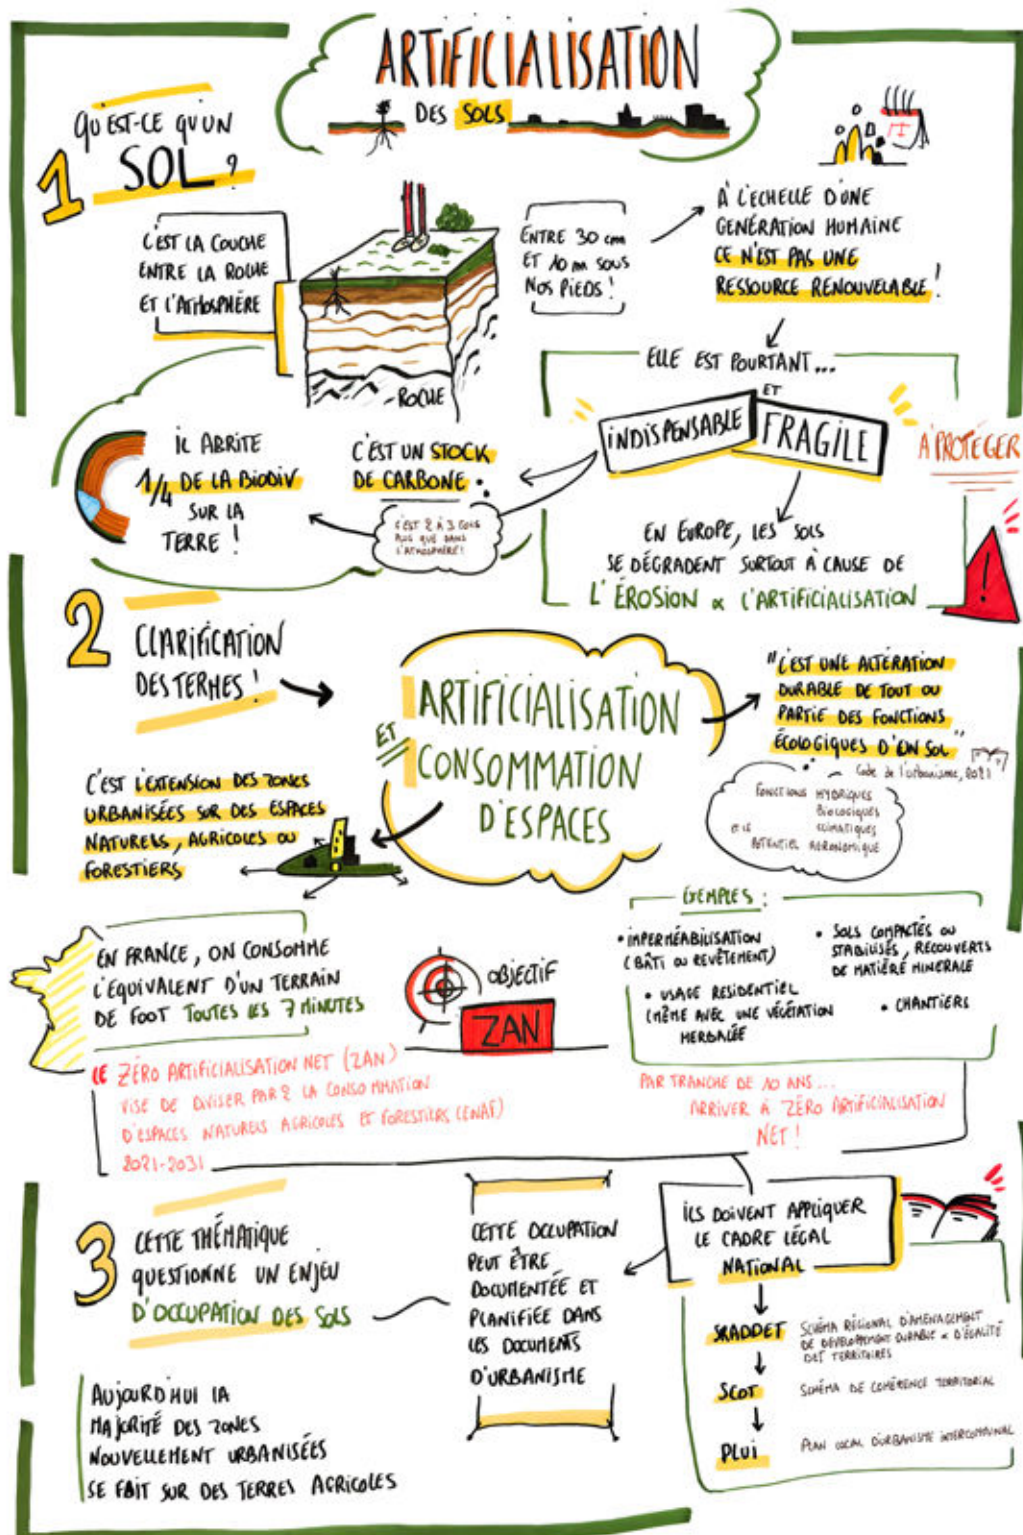 ARTIFICIALISATION
DES SOLS
1
QU'EST-CE QU'UN
SOL ?
C'EST LA COUCHE
ENTRE LA ROCHE
ET L'ATMOSPHÈRE
ROCHE
ENTRE 30 cm
ET 10 m SOUS
NOS PIEDS !
À L'ECHELLE D'UNE
GENÉRATION HUMAINE
CE N'EST PAS UNE
RESSOURCE RENOUVELABLE !
ELLE EST POURTANT...
INDISPENSABLE
ET
FRAGILE
À PROTÉGER
IL ABRITE
1/4 DE LA BIODIV
SUR LA
TERRE !
C'EST UN STOCK
DE CARBONE
C'EST 2 À 3 FOIS
PLUS QUE DANS
L'ATMOSPHÈRE !
EN EUROPE, LES SOLS
SE DÉGRADENT SURTOUT À CAUSE DE
L'ÉROSION & L'ARTIFICIALISATION
!
2
CLARIFICATION
DES TERMES !
ARTIFICIALISATION
ET
CONSOMMATION
D'ESPACES
"C'EST UNE ALTÉRATION
DURABLE DE TOUT OU
PARTIE DES FONCTIONS
ÉCOLOGIQUES D'UN SOL"
Code de l'urbanisme, 2021
FONCTIONS HYDRIQUES
BIOLOGIQUES
CLIMATIQUES
ET LE
POTENTIEL AGRONOMIQUE
C'EST L'EXTENSION DES ZONES
URBANISÉES SUR DES ESPACES
NATURELS, AGRICOLES OU
FORESTIERS
EN FRANCE, ON CONSOMME
L'ÉQUIVALENT D'UN TERRAIN
DE FOOT TOUTES LES 7 MINUTES
OBJECTIF
ZAN
EXEMPLES :
• IMPERMÉABILISATION
(BÂTI OU REVÊTEMENT)
• USAGE RESIDENTIEL
(MÊME AVEC UNE VÉGÉTATION
HERBACÉE
• SOLS COMPACTÉS OU
STABILISÉS, RECOUVERTS
DE MATIÈRE MINERALE
• CHANTIERS
LE ZÉRO ARTIFICIALISATION NET (ZAN)
VISE DE DIVISER PAR 2 LA CONSOMMATION
D'ESPACES NATURELS AGRICOLES ET FORESTIERS (ENAF)
2021-2031
PAR TRANCHE DE 10 ANS...
ARRIVER À ZÉRO ARTIFICIALISATION
NET !
3
CETTE THÉMATIQUE
QUESTIONNE UN ENJEU
D'OCCUPATION DES SOLS
AUJOURD'HUI LA
MAJORITÉ DES ZONES
NOUVELLEMENT URBANISÉES
SE FAIT SUR DES TERRES AGRICOLES
CETTE OCCUPATION
PEUT ÊTRE
DOCUMENTÉE ET
PLANIFIÉE DANS
LES DOCUMENTS
D'URBANISME
ILS DOIVENT APPLIQUER
LE CADRE LÉGAL
NATIONAL
SRADDET
SCHÉMA RÉGIONAL D'AMENAGEMENT
DE DEVELOPPEMENT DURABLE & D'ÉGALITÉ
DES TERRITOIRES
SCOT
SCHÉMA DE COHÉRENCE TERRITORIAL
PLUi
PLAN LOCAL D'URBANISME INTERCOMMUNAL